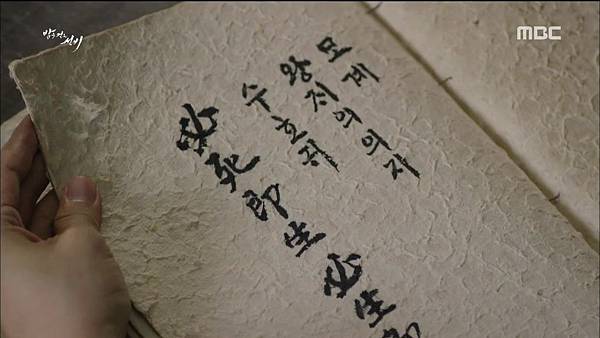 밤을 걷는 선비
MBC
모계
왕재의 의지
수호귀
必死即生 必生